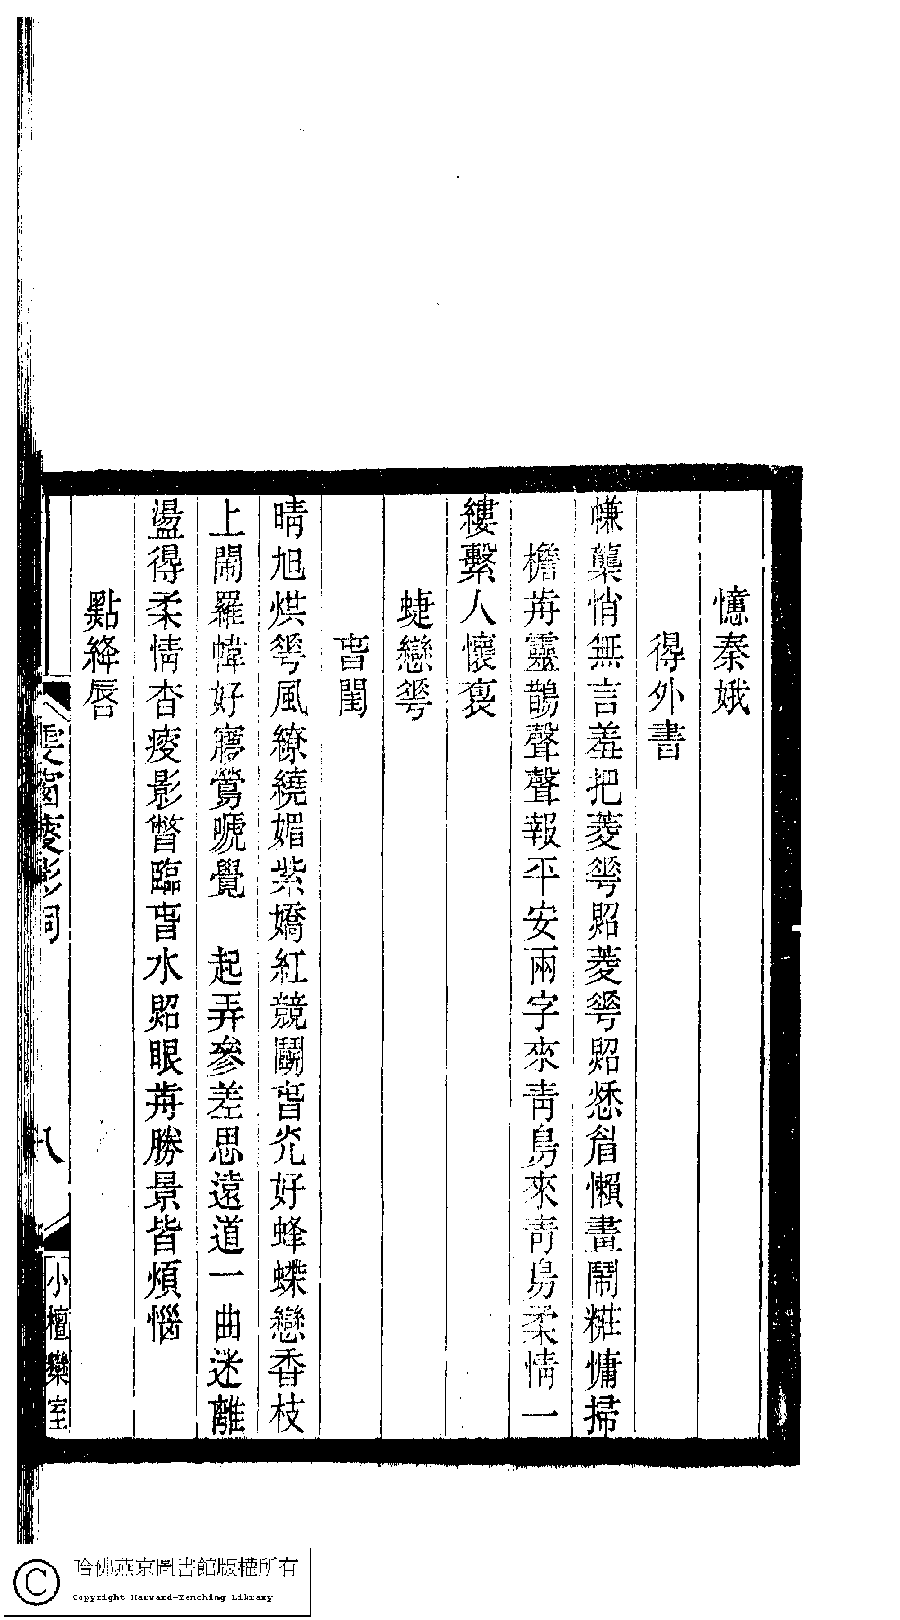 憶秦娥
得外書
㡘櫳悄無言羞把菱蕚照菱蕚照愁眉懶畫鬧糚慵掃
檐歬靈鵲聲聲報平安兩字來靑鳥來靑鳥柔情一
縷繫人懷褱
蜨戀蕚
旾閨
晴旭烘蕚風繚繞媚紫嬌紅競鬬旾灮好蜂蝶戀香枝
上鬧羅幃好寢鶯嗁覺　起弄參差思遠道一曲迷離
盪得柔情杳瘦影瞥臨旾水照眼歬勝景皆煩惱
點絳脣
雯窗瘦影詞
八
小檀欒室
哈佛燕京圖書館版權所有
Copyright Harvard-Yenching Library